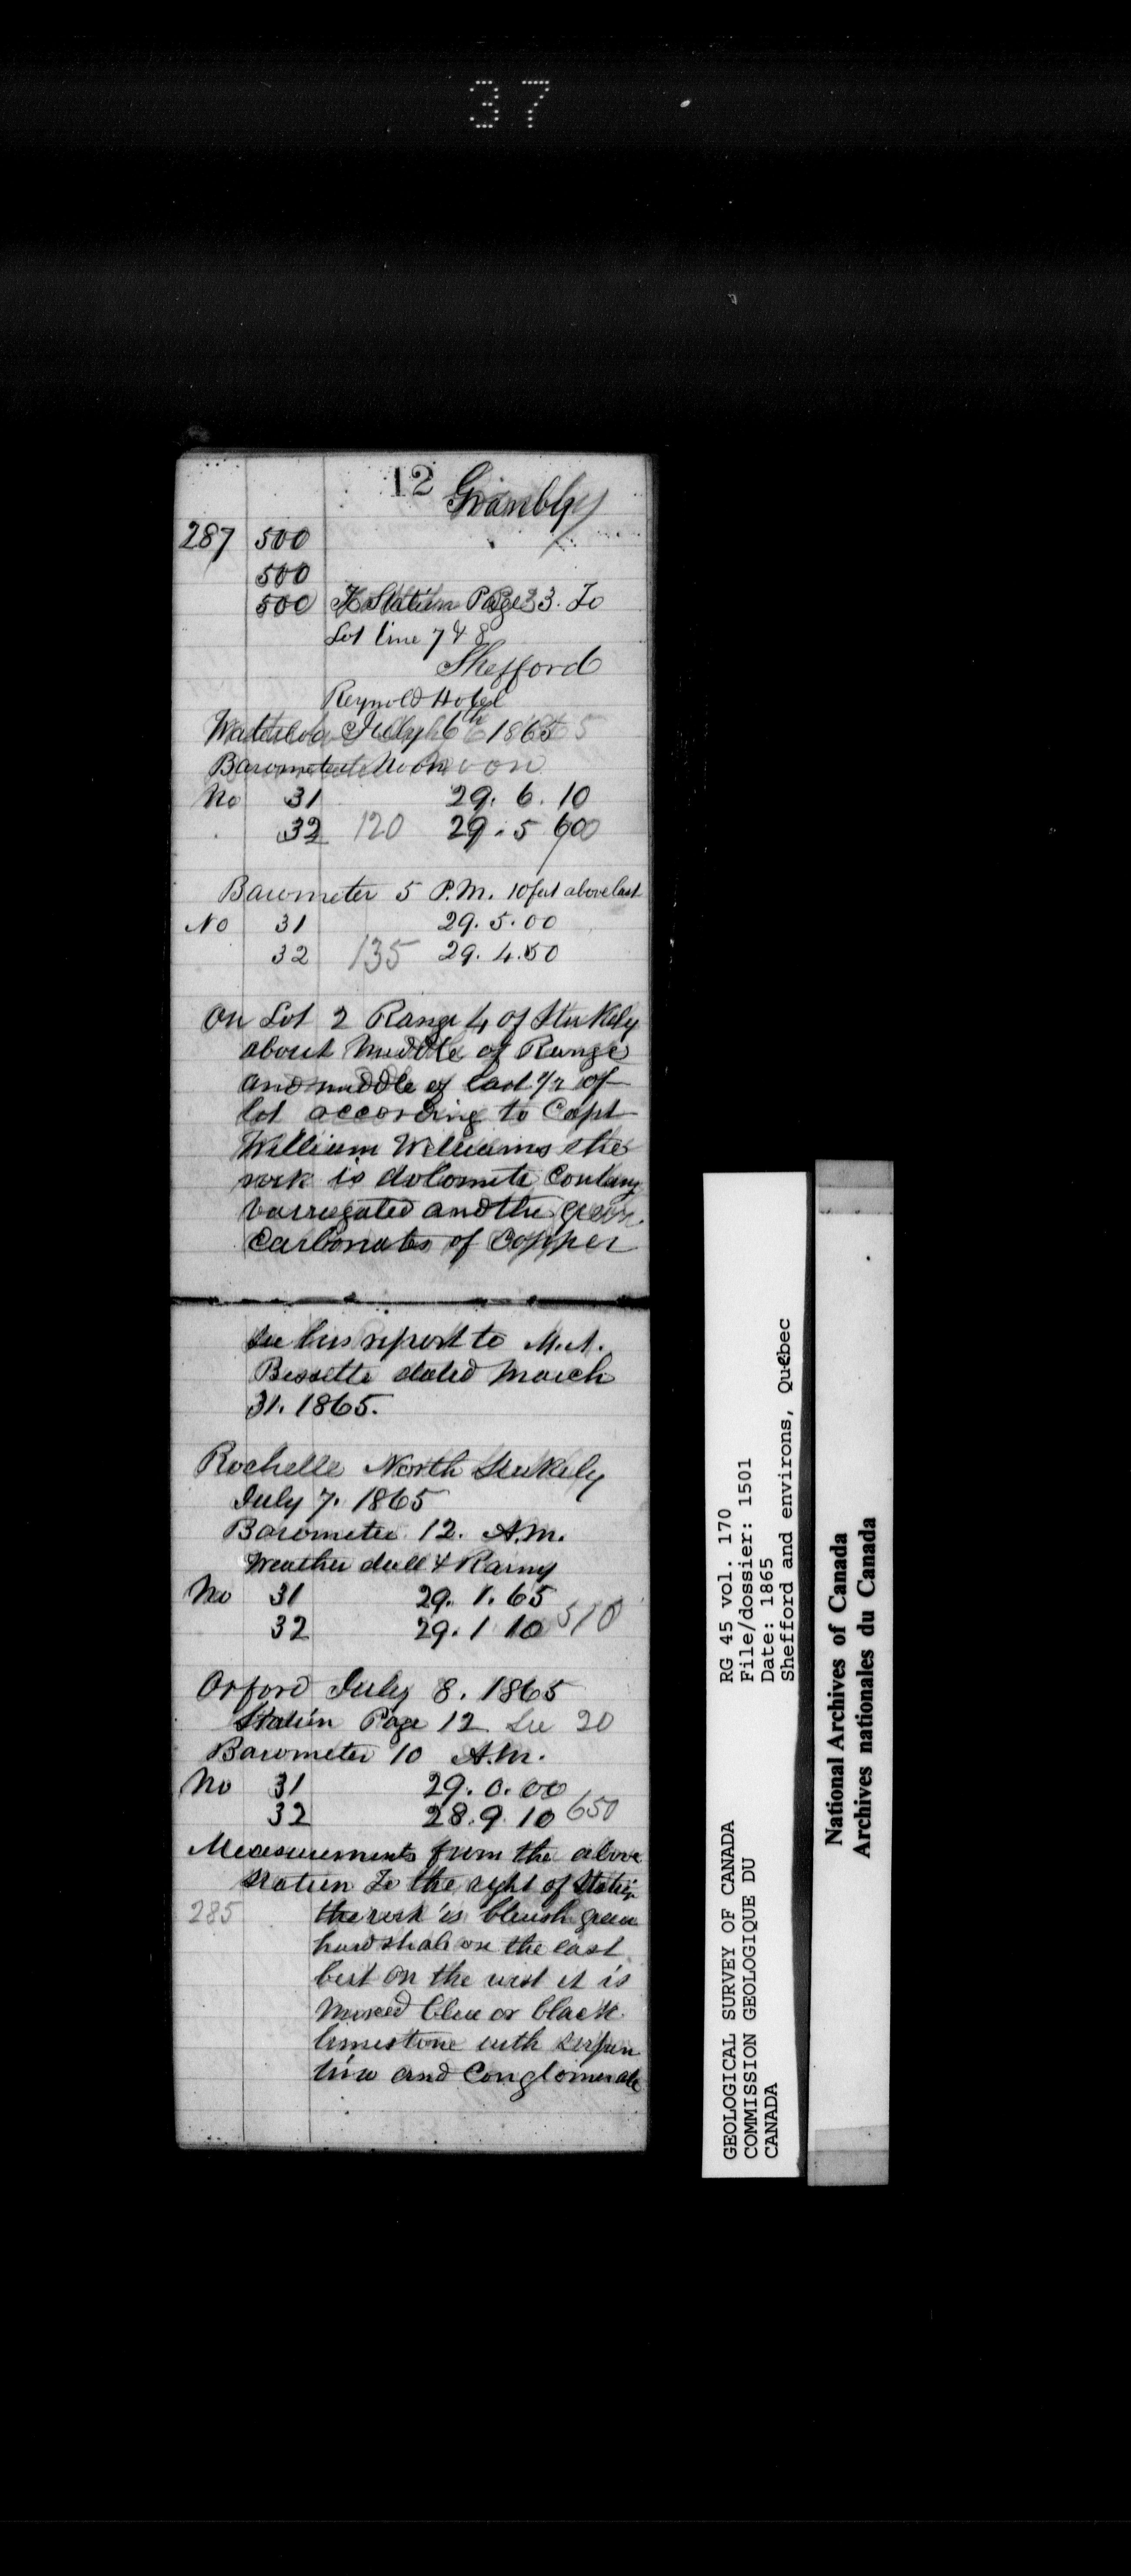 37
12 Granby
287 500
500
500 Station Page 33. To
Lot line 7 & 8
Shefford
Reynold Hotel
Waterloo July 6th 1865
Barometer Noon
No 31 29. 6. 10
32 120 29. 5 600
Barometer 5 P.M. 10 feet above last
No 31 29. 5. 00
32 135 29. 4. 50
On Lot 2 Range 4 of Stukely
about middle of Range
and middle of East 1/2 of
lot according to Capt
William Williams the
rock is dolomite Containg
Varriegated and the green
Carbonates of Copper
See his report to M. A.
Bessette dated March
31. 1865.
Rochelle North Stukely
July 7. 1865
Barometer 12. A.M.
Weather dull & Rainy
No 31 29. 1. 65
32 29. 1 10 510
Orford July 8. 1865
Station Page 12 See 20
Barometer 10 A.M.
No 31 29. 0. 00
32 28. 9. 10 650
Measurements from the above
Station To the right of Station
285 the rock is bluish green
hard shale on the east
but on the west it is
mixed blue or black
limestone with serpen
tine and Conglomerate
GEOLOGICAL SURVEY OF CANADA
COMMISSION GEOLOGIQUE DU
CANADA
RG 45 vol. 170
File/dossier: 1501
Date: 1865
Shefford and environs, Quebec
National Archives of Canada
Archives nationales du Canada